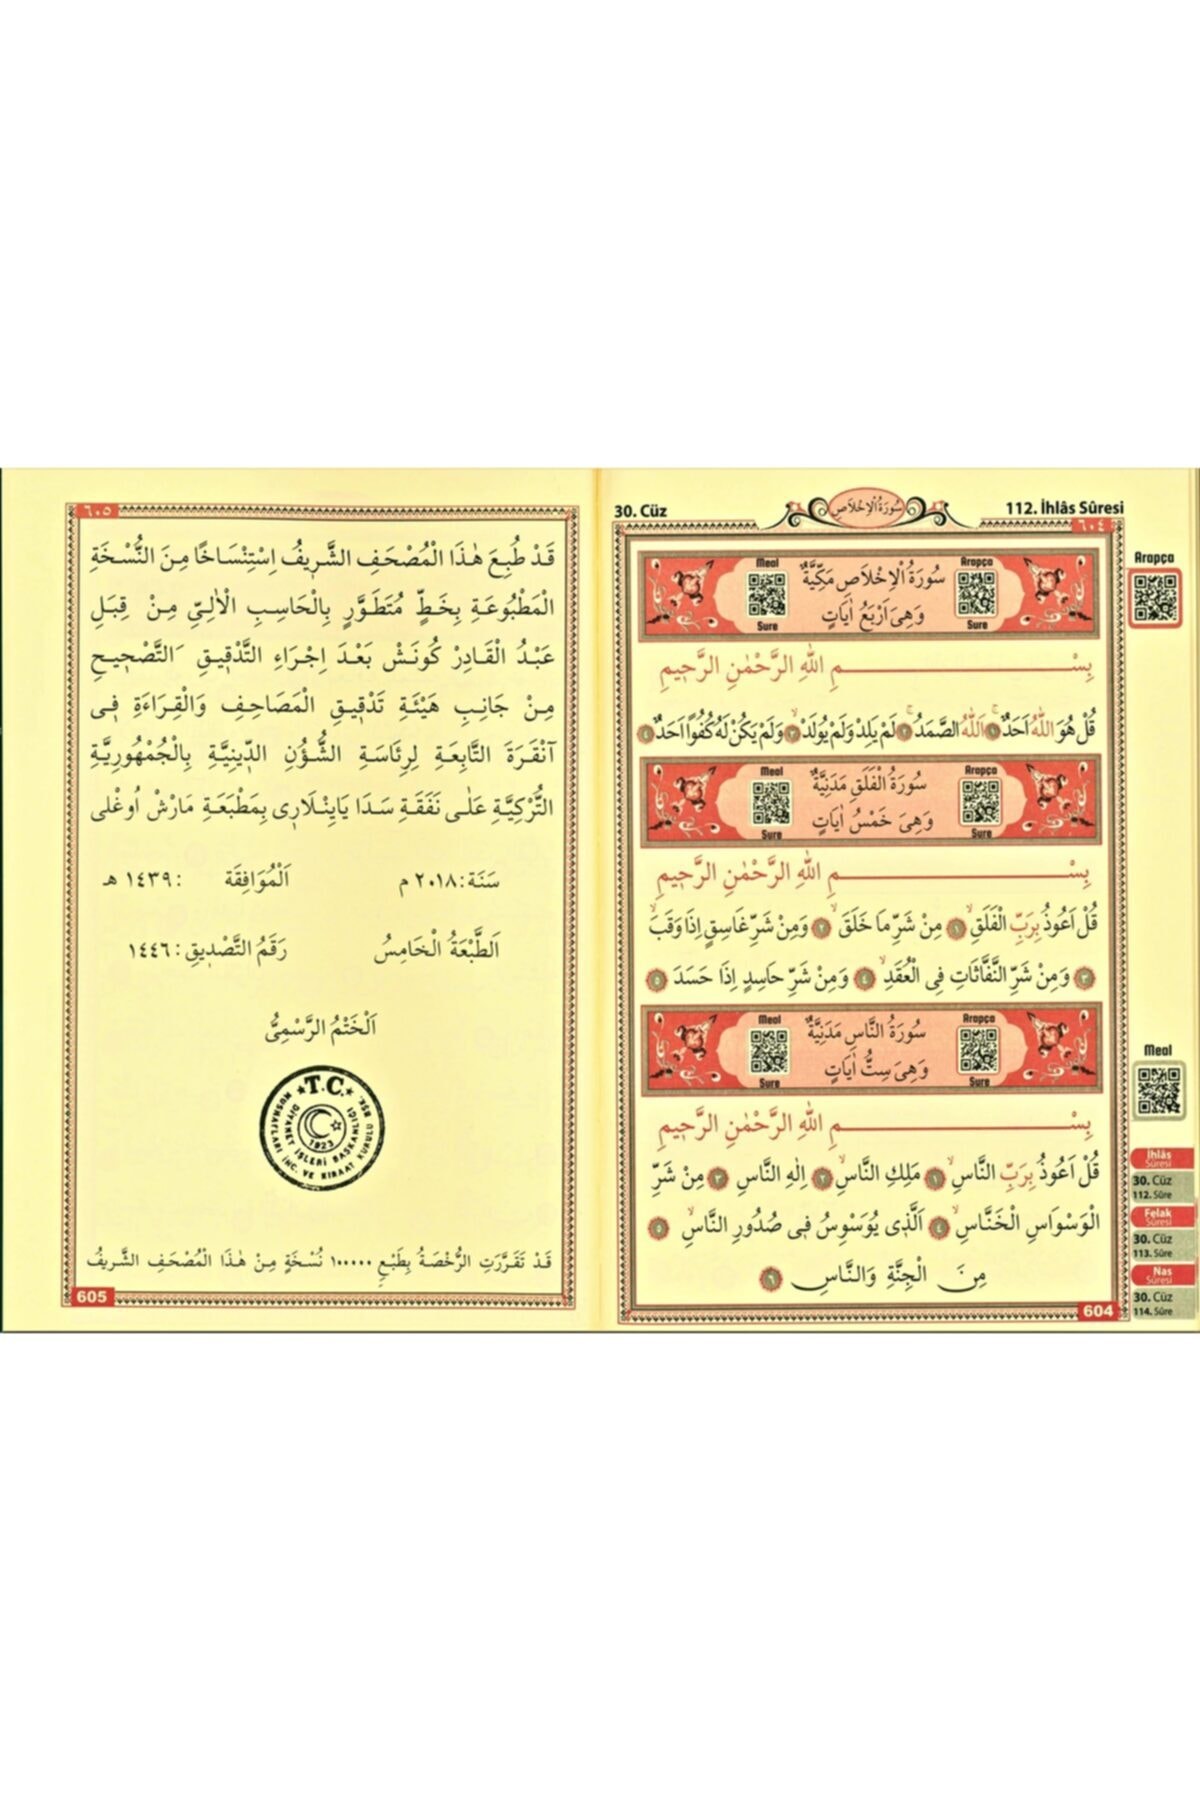 30. Cüz
سُورَةُ الْاِخْلَاصِ
112. İhlâs Sûresi
٦٠٤
Arapça
Meal
سُورَةُ الْاِخْلَاصِ مَكِّيَّةٌ
Arapça
Sure
وَهِىَ اَرْبَعُ اٰيَاتٍ
Sure
بِسْمِ اللّٰهِ الرَّحْمٰنِ الرَّحٖيمِ
قُلْ هُوَ اللّٰهُ اَحَدٌۚ ﴿١﴾ اَللّٰهُ الصَّمَدُۚ ﴿٢﴾ لَمْ يَلِدْ وَلَمْ يُولَدْۙ ﴿٣﴾ وَلَمْ يَكُنْ لَهُ كُفُوًا اَحَدٌ ﴿٤﴾
Meal
سُورَةُ الْفَلَقِ مَدَنِيَّةٌ
Arapça
Sure
وَهِىَ خَمْسُ اٰيَاتٍ
Sure
بِسْمِ اللّٰهِ الرَّحْمٰنِ الرَّحٖيمِ
قُلْ اَعُوذُ بِرَبِّ الْفَلَقِۙ ﴿١﴾ مِنْ شَرِّ مَا خَلَقَۙ ﴿٢﴾ وَمِنْ شَرِّ غَاسِقٍ اِذَا وَقَبَۙ
﴿٣﴾ وَمِنْ شَرِّ النَّفَّاثَاتِ فِى الْعُقَدِۙ ﴿٤﴾ وَمِنْ شَرِّ حَاسِدٍ اِذَا حَسَدَ ﴿٥﴾
Meal
سُورَةُ النَّاسِ مَدَنِيَّةٌ
Arapça
Sure
وَهِىَ سِتُّ اٰيَاتٍ
Sure
بِسْمِ اللّٰهِ الرَّحْمٰنِ الرَّحٖيمِ
قُلْ اَعُوذُ بِرَبِّ النَّاسِۙ ﴿١﴾ مَلِكِ النَّاسِۙ ﴿٢﴾ اِلٰهِ النَّاسِ ﴿٣﴾ مِنْ شَرِّ
الْوَسْوَاسِ الْخَنَّاسِۙ ﴿٤﴾ اَلَّذٖى يُوَسْوِسُ فٖى صُدُورِ النَّاسِۙ ﴿٥﴾
مِنَ الْجِنَّةِ وَالنَّاسِ ﴿٦﴾
604
Meal
İhlâs
Sûresi
30. Cüz
112. Sûre
Felak
Sûresi
30. Cüz
113. Sûre
Nas
Sûresi
30. Cüz
114. Sûre
٦٠٥
قَدْ طُبِعَ هٰذَا الْمُصْحَفِ الشَّرٖيفُ اِسْتِنْسَاخًا مِنَ النُّسْخَةِ
الْمَطْبُوعَةِ بِخَطٍّ مُتَطَوَّرٍ بِالْحَاسِبِ الْاٰلِىّٖ مِنْ قِبَلِ
عَبْدُ الْقَادِرْ كُونَشْ بَعْدَ اِجْرَاءِ التَّدْقٖيقِ َالتَّصْحٖيحِ
مِنْ جَانِبِ هَيْئَةِ تَدْقٖيقِ الْمَصَاحِفِ وَالْقِرَاءَةِ فٖى
آنْقَرَةَ التَّابِعَةِ لِرِئَاسَةِ الشُّؤُنِ الدّٖينِيَّةِ بِالْجُمْهُورِيَّةِ
التُّرْكِيَّةِ عَلٰى نَفَقَةِ سَدَا يَايِنْلَارٖى بِمَطْبَعَةِ مَارْشْ اُوغْلٖى
سَنَة: ٢٠١٨ م اَلْمُوَافِقَة : ١٤٣٩ هـ
اَلطَّبْعَةُ الْخَامِسُ رَقَمُ التَّصْدٖيقِ: ١٤٤٦
اَلْخَتْمُ الرَّسْمِىُّ
T.C.
DİYANET İŞLERİ BAŞKANLIĞI
MUSHAFLARI İNC. VE KIRAAT KURULU BŞK.
1923
قَدْ تَقَرَّرَتِ الرُّخْصَةُ بِطَبْعِ ١٠٠٠٠٠ نُسْخَةٍ مِنْ هٰذَا الْمُصْحَفِ الشَّرٖيفُ
605